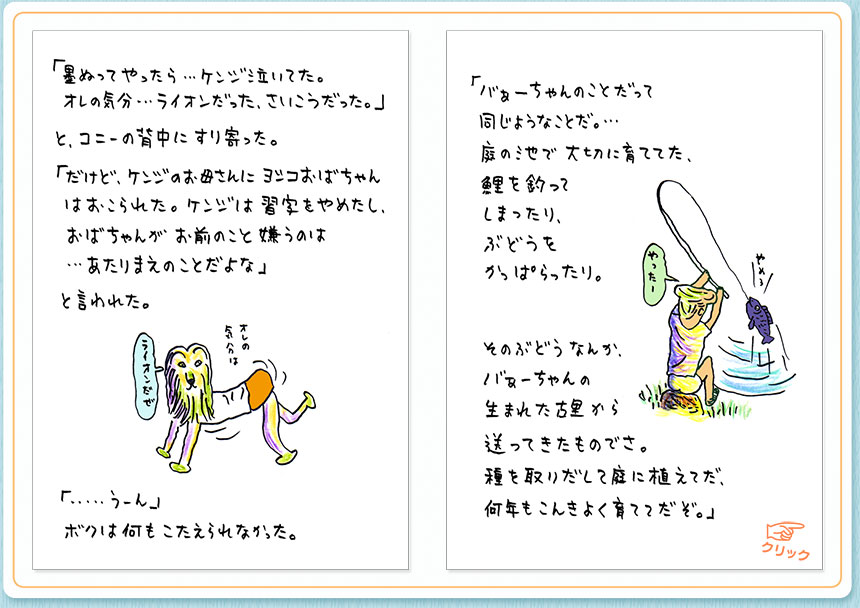 「墨ぬってやったら…ケンジ泣いてた。
オレの気分…ライオンだった、さいこうだった。」
と、コニーの背中に すり寄った。
「だけど、ケンジのお母さんに ヨシコおばちゃん
はおこられた。ケンジは 習字をやめたし、
おばちゃんが お前のこと 嫌うのは
…あたりまえのことだよな」
と言われた。
オレの
気分は
ライオンだぜ
「‥‥‥うーん」
ボクは何もこたえられなかった。
「バぁーちゃんのことだって
同じようなことだ。…
庭の池で 大切に育ててた、
鯉を釣って
しまったり、
ぶどうを
かっぱらったり。
やったー
やめろ
そのぶどうなんか、
バぁーちゃんの
生まれた古里から
送ってきたものでさ。
種を取りだして庭に植えてだ、
何年もこんきよく育ててだぞ。」
クリック